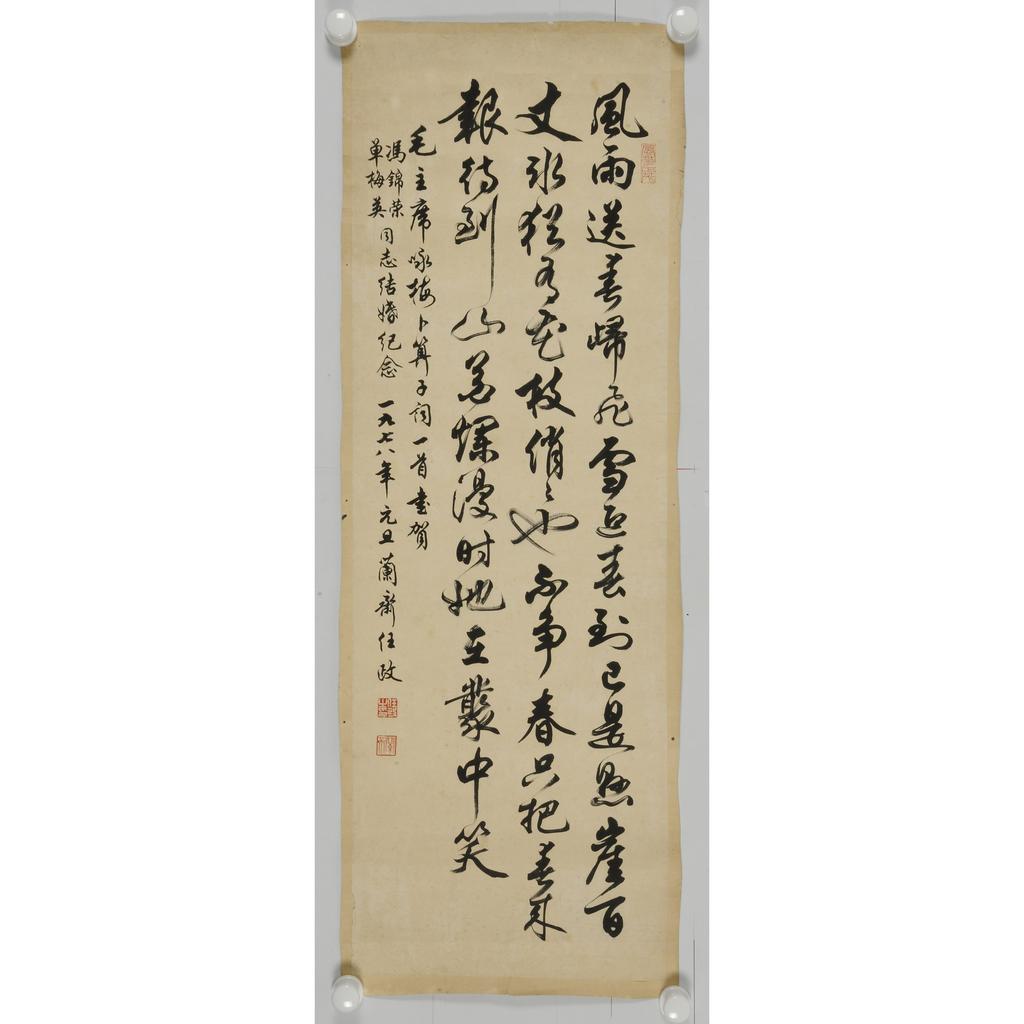 風雨送春歸飛雪迎春到已是懸崖百
丈冰猶有花枝俏俏也不争春只把春来
報待到山花爛漫时她在叢中笑
毛主席咏梅卜算子词一首書賀
馮錦荣
单梅英
同志结婚纪念 一九七八年元旦蘭齋任政